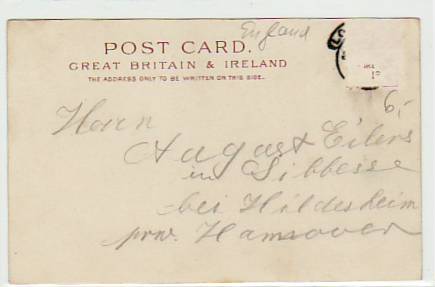 England
POST CARD.
GREAT BRITAIN & IRELAND
THE ADDRESS ONLY TO BE WRITTEN ON THIS SIDE.
6,-
Herrn
August Eilers
in Sibbesse
bei Hildesheim
prov. Hannover